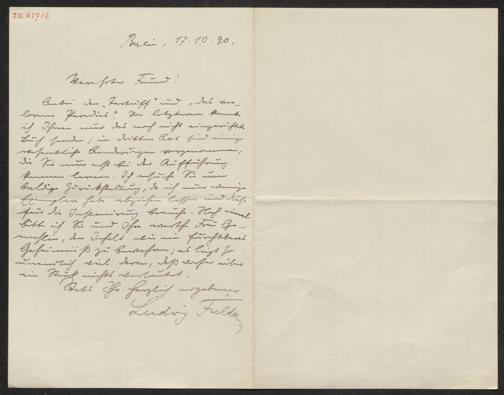 Berlin, 17.10.90.
Verehrter Freund!
Anbei der „Tartüff" und „das ver-
lorene Paradies". Von letzterem konnte
ich Ihnen nur das noch nicht eingerichtete
Buch senden; im dritten Act sind einige
wesentliche Aenderungen vorgenommen,
die Sie nun erst bei der Aufführung
kennen lernen. Ich ersuche Sie um
baldige Zurückstellung, da ich nur wenige
Exemplare habe abziehen lassen und diese
für die Inscenirung brauche. Noch einmal
bitte ich Sie und Ihre werthe Frau Ge-
mahlin, den Inhalt wie ein furchtbares
Geheimniß zu bewahren; es liegt so
unendlich viel daran, daß vorher über
ein Stück nichts verlautet.
Stets Ihr herzlich ergebener
Ludwig Fulda